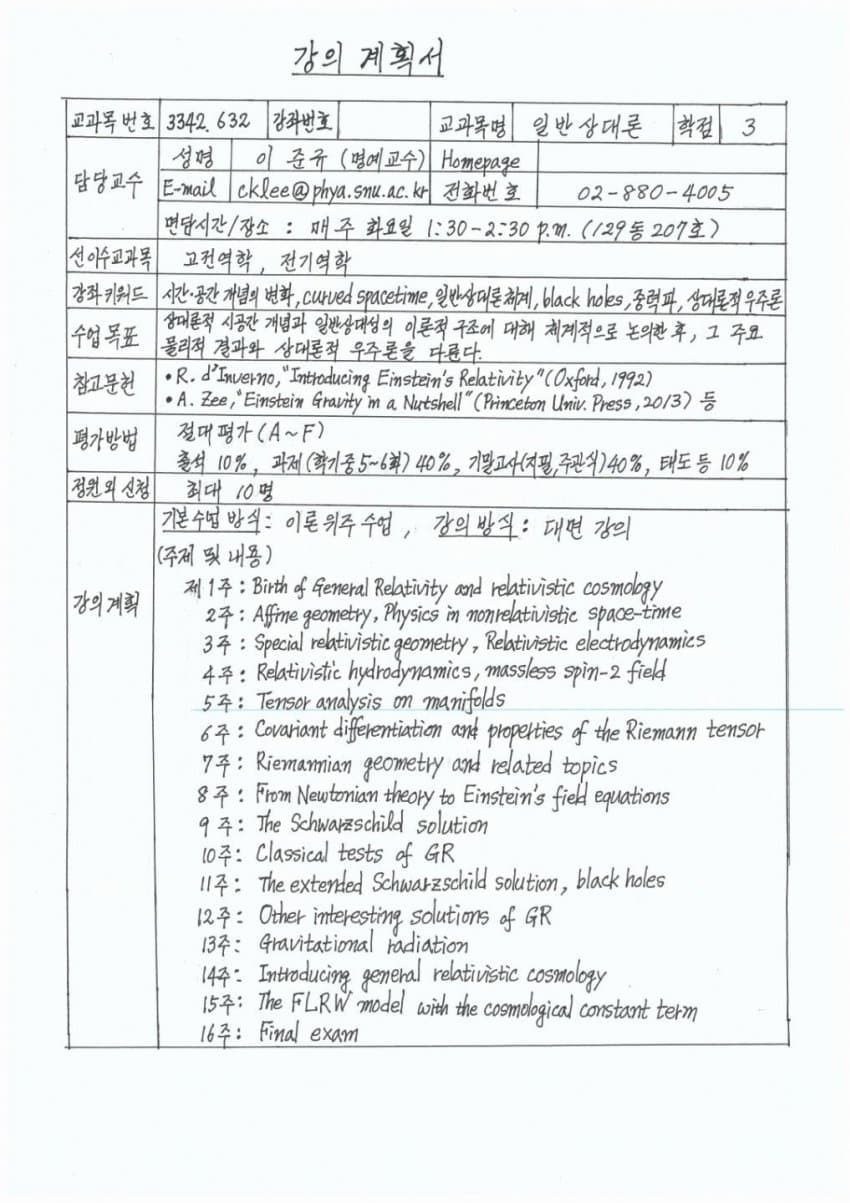 강의 계획서
교과목 번호 3342.632 강좌번호 교과목명 일반상대론 학점 3
담당교수 성명 이 준규 (명예교수) Homepage
E-mail cklee@phya.snu.ac.kr 전화번호 02-880-4005
면담시간/장소 : 매주 화요일 1:30-2:30 p.m. (129동 207호)
선이수교과목 고전역학, 전기역학
강좌 키워드 시간·공간 개념의 변화, curved spacetime, 일반상대론 체계, black holes, 중력파, 상대론적 우주론
수업 목표 상대론적 시공간 개념과 일반상대성의 이론적 구조에 대해 체계적으로 논의한 후, 그 주요
물리적 결과와 상대론적 우주론을 다룬다.
참고문헌 • R. d'Inverno, "Introducing Einstein's Relativity" (Oxford, 1992)
• A. Zee, "Einstein Gravity in a Nutshell" (Princeton Univ. Press, 2013) 등
평가방법 절대평가 (A~F)
출석 10%, 과제 (학기중 5~6회) 40%, 기말고사(지필, 주관식) 40%, 태도 등 10%
정원외 신청 최대 10명
강의계획 기본수업 방식 : 이론위주 수업, 강의 방식 : 대면 강의
(주제 및 내용)
제 1주 : Birth of General Relativity and relativistic cosmology
2주 : Affine geometry, Physics in nonrelativistic space-time
3주 : Special relativistic geometry, Relativistic electrodynamics
4주 : Relativistic hydrodynamics, massless spin-2 field
5주 : Tensor analysis on manifolds
6주 : Covariant differentiation and properties of the Riemann tensor
7주 : Riemannian geometry and related topics
8주 : From Newtonian theory to Einstein's field equations
9주 : The Schwarzschild solution
10주 : Classical tests of GR
11주 : The extended Schwarzschild solution, black holes
12주 : Other interesting solutions of GR
13주 : Gravitational radiation
14주 : Introducing general relativistic cosmology
15주 : The FLRW model with the cosmological constant term
16주 : Final exam